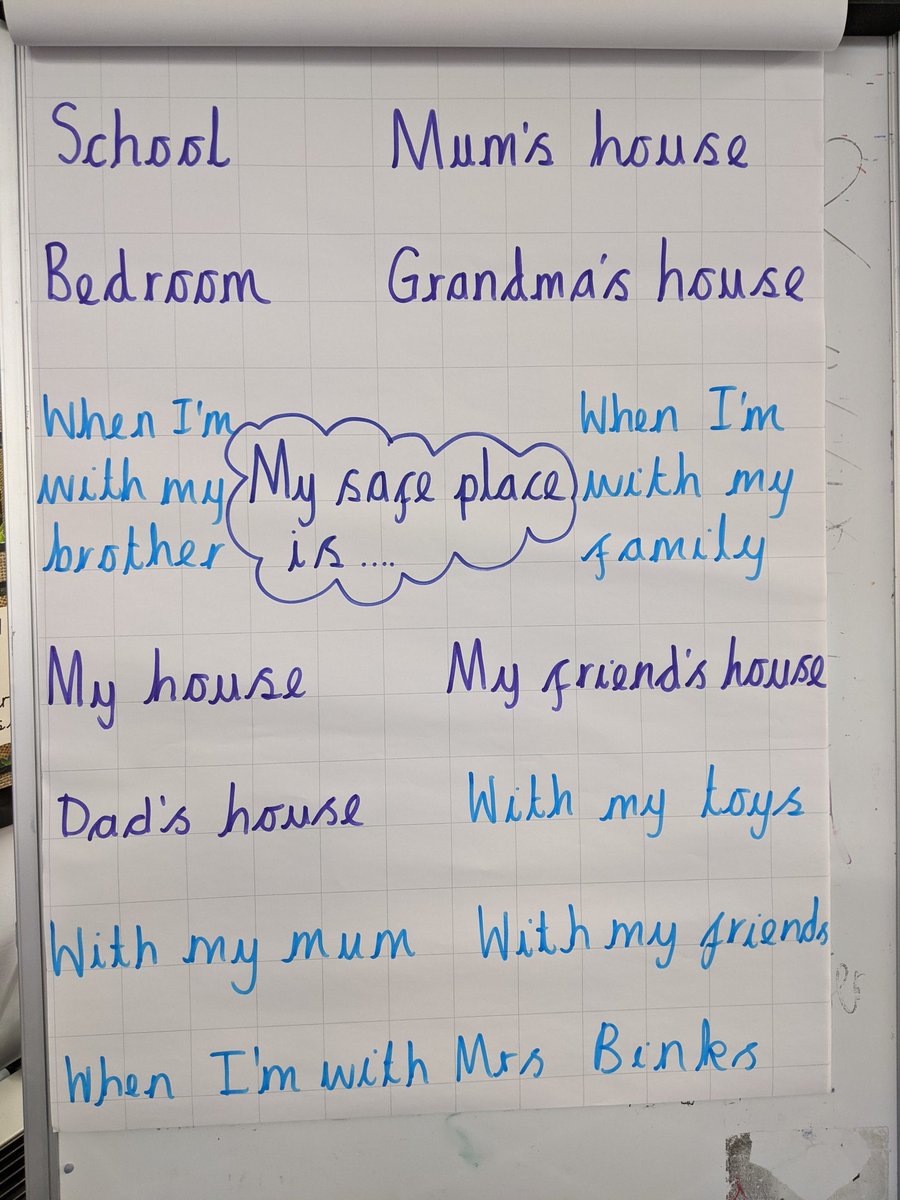 School
Mum's house
Bedroom
Grandma's house
When I'm
with my
brother
My safe place
is....
When I'm
with my
family
My house
My friend's house
Dad's house
With my toys
With my mum
With my friends
When I'm with Mrs Binks